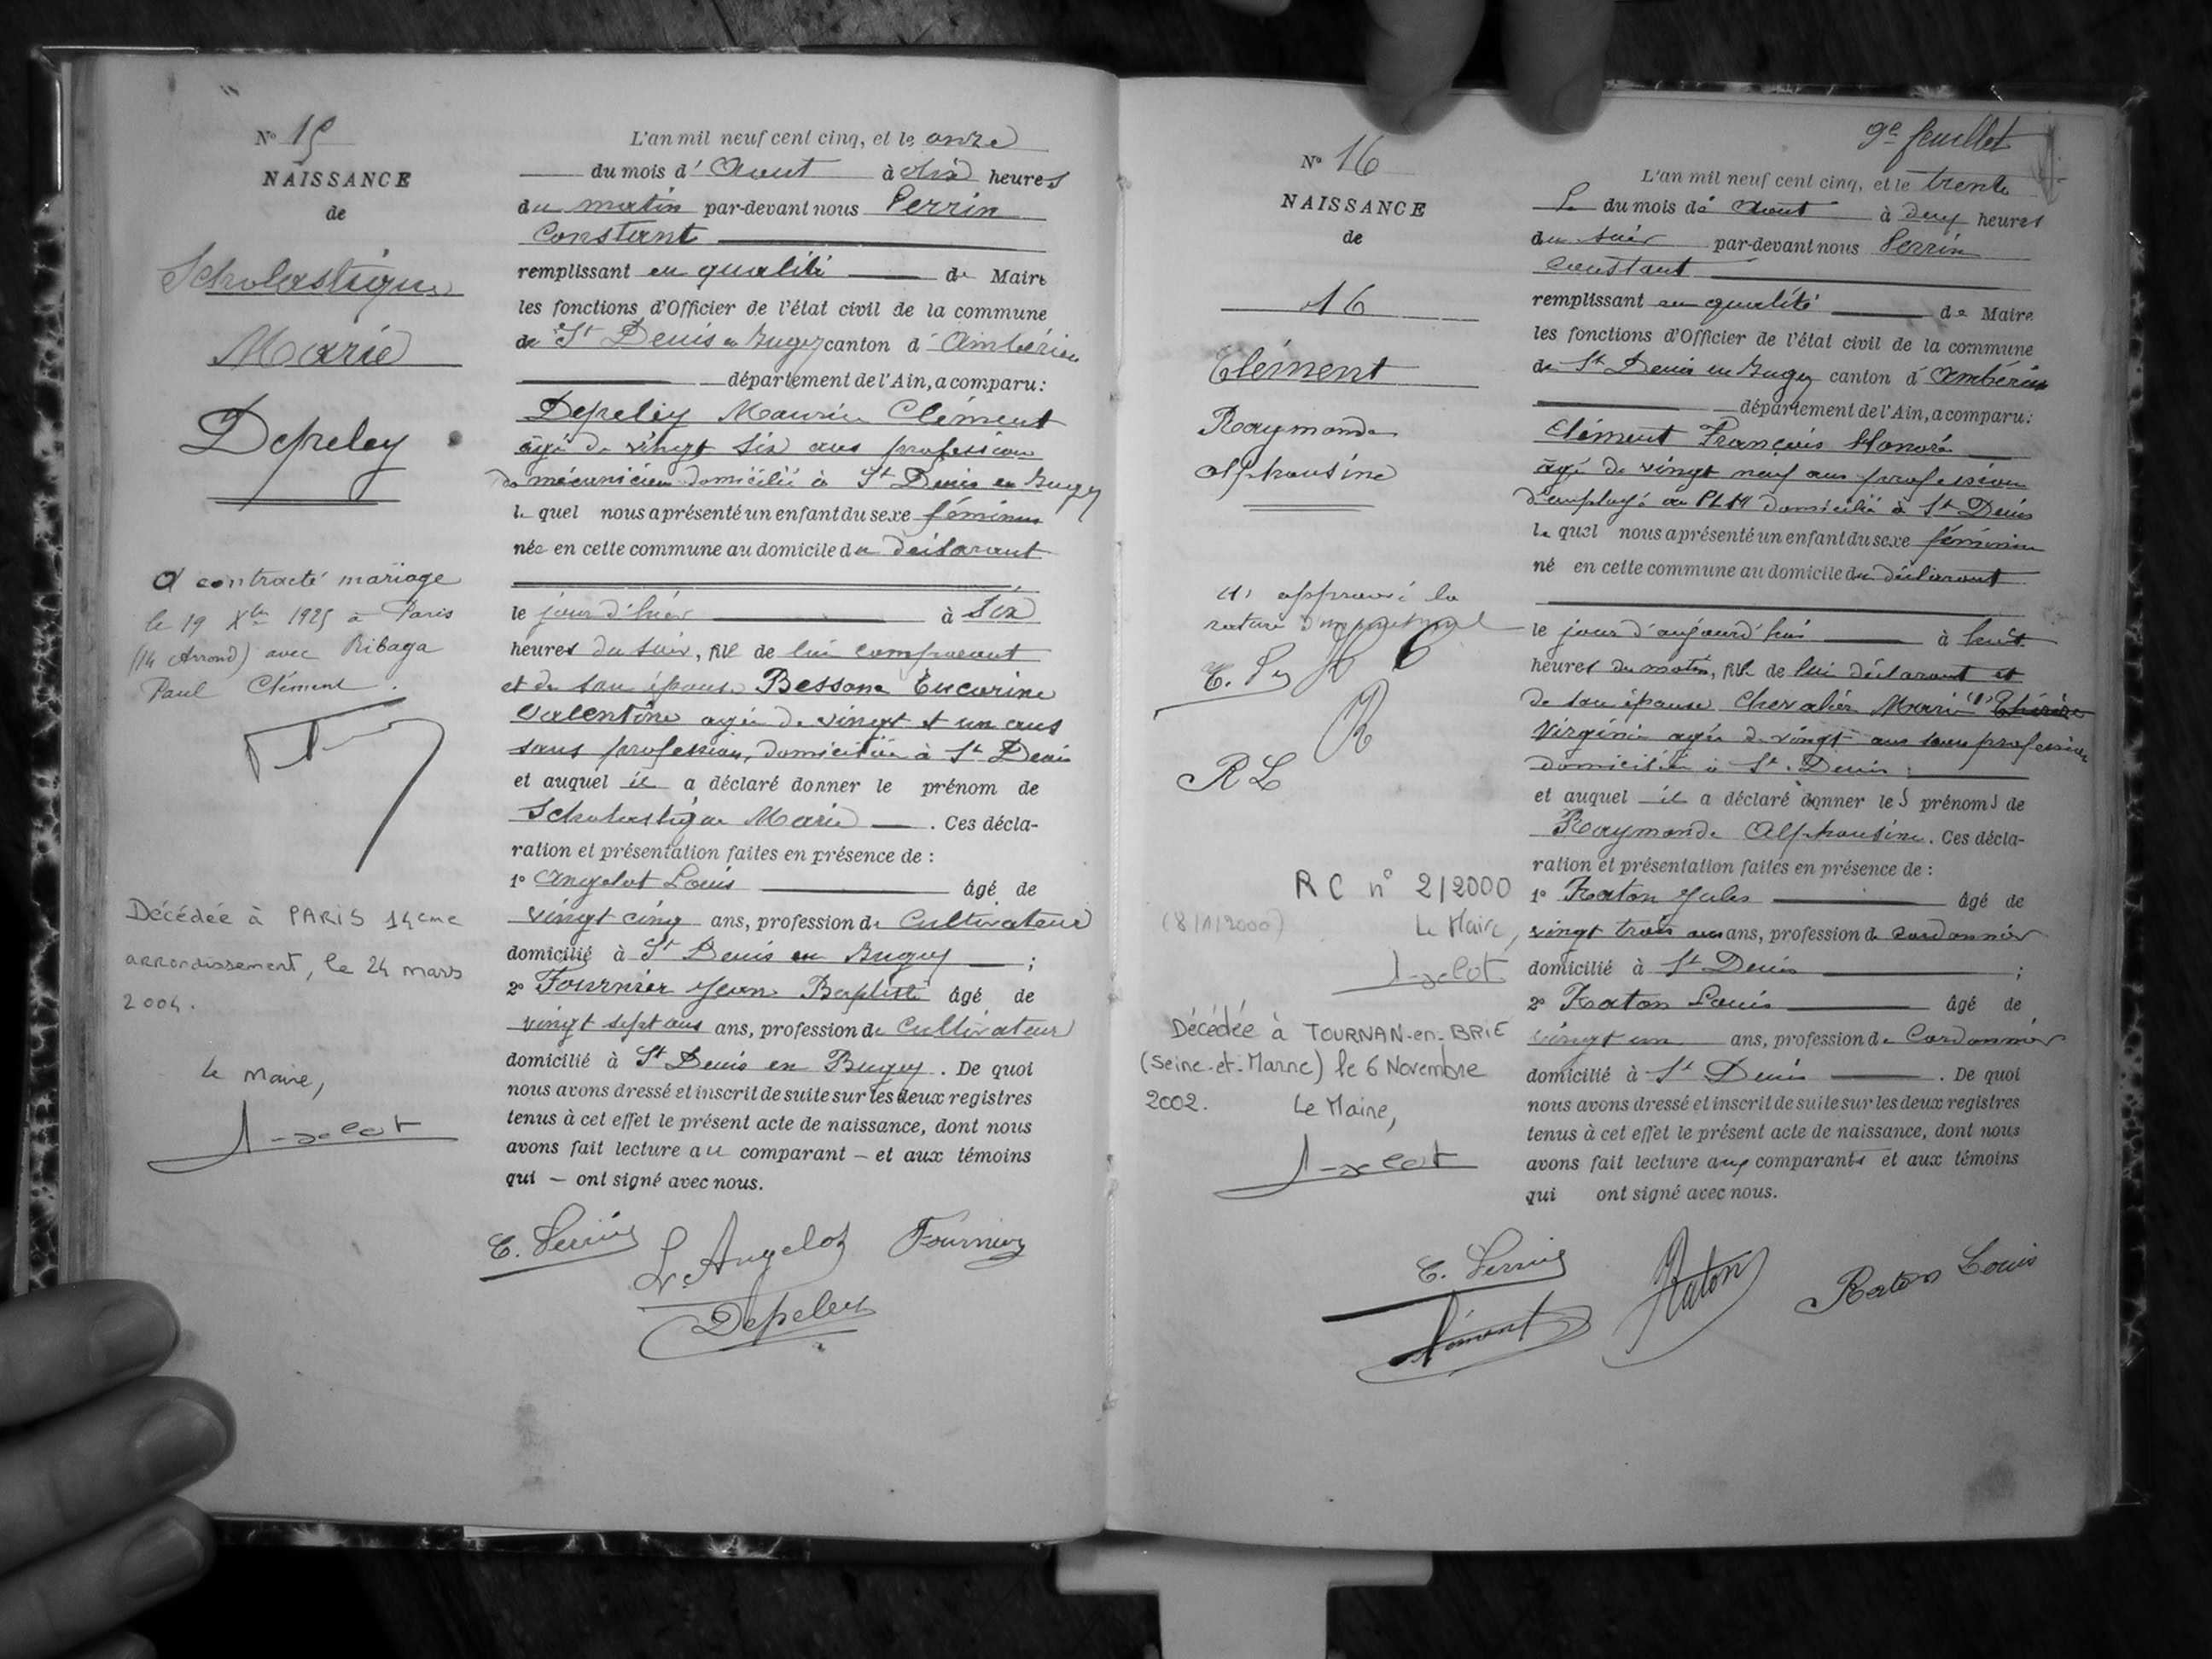 N° 15
NAISSANCE
de
Scholastique
Marie
Depeley
A contracté mariage
le 19 Xbre 1925 à Paris
(14 Arrond) avec Ribaga
Paul Clément.
Décédée à PARIS 14eme
arrondissement, le 24 mars
2004.
Le Maire,
L'an mil neuf cent cinq, et le onze
du mois d'Aout à dix heures
du matin par-devant nous Perrin
Constant
remplissant en qualité de Maire
les fonctions d'Officier de l'état civil de la commune
de St Denis en Bugey canton d'Ambérieu
département de l'Ain, a comparu :
Depeley Clément
âgé de vingt six ans profession
de mécanicien domicilié à St Denis en Bugey
le quel nous a présenté un enfant du sexe féminin
née en cette commune au domicile du déclarant
le jour d'hier à six
heures du soir, fille de lui comparant
et de son épouse Bessone
Valentine agée de vingt et un ans
sans profession, domiciliée à St Denis
et auquel il a déclaré donner le prénom de
Scholastique Marie . Ces décla-
ration et présentation faites en présence de :
1° Angelot Louis âgé de
vingt cinq ans, profession de Cultivateur
domicilié à St Denis en Bugey ;
2° Fournier Jean Baptiste âgé de
vingt sept ans ans, profession de Cultivateur
domicilié à St Denis en Bugey . De quoi
nous avons dressé et inscrit de suite sur les deux registres
tenus à cet effet le présent acte de naissance, dont nous
avons fait lecture au comparant – et aux témoins
qui – ont signé avec nous.
C. Perrin L. Angelot Fournier
Depeley
9e feuillet
N° 16
NAISSANCE
de
16
Clément
Raymonde
Alphonsine
(1) approuvé la
rature d'un mot nul
C. P
R L
RC n° 2/2000
(8/1/2000) Le Maire,
Décédée à TOURNAN-en-BRIE
(Seine-et-Marne) le 6 Novembre
2002. Le Maire,
L'an mil neuf cent cinq, et le trente
du mois de Aout à deux heures
du soir par-devant nous Perrin
Constant
remplissant en qualité de Maire
les fonctions d'Officier de l'état civil de la commune
de St Denis en Bugey canton d'Ambérieu
département de l'Ain, a comparu :
Clément François Honoré
âgé de vingt neuf ans profession
d'employé au PLM domicilié à St Denis
le quel nous a présenté un enfant du sexe féminin
né en cette commune au domicile du déclarant
le jour d'aujourd'hui à huit
heures du matin, fille de lui déclarant et
de son épouse Chevalier Marie (1) Thérèse
Virginie agée de vingt ans sans profession
domiciliée à St. Denis
et auquel il a déclaré donner les prénoms de
Raymonde Alphonsine. Ces décla-
ration et présentation faites en présence de :
1° Raton Jules âgé de
vingt trois ans ans, profession de cordonnier
domicilié à St Denis ;
2° Raton Louis âgé de
vingt un ans, profession de Cordonnier
domicilié à St Denis . De quoi
nous avons dressé et inscrit de suite sur les deux registres
tenus à cet effet le présent acte de naissance, dont nous
avons fait lecture aux comparants et aux témoins
qui ont signé avec nous.
C. Perrin Raton Raton Louis
Clément